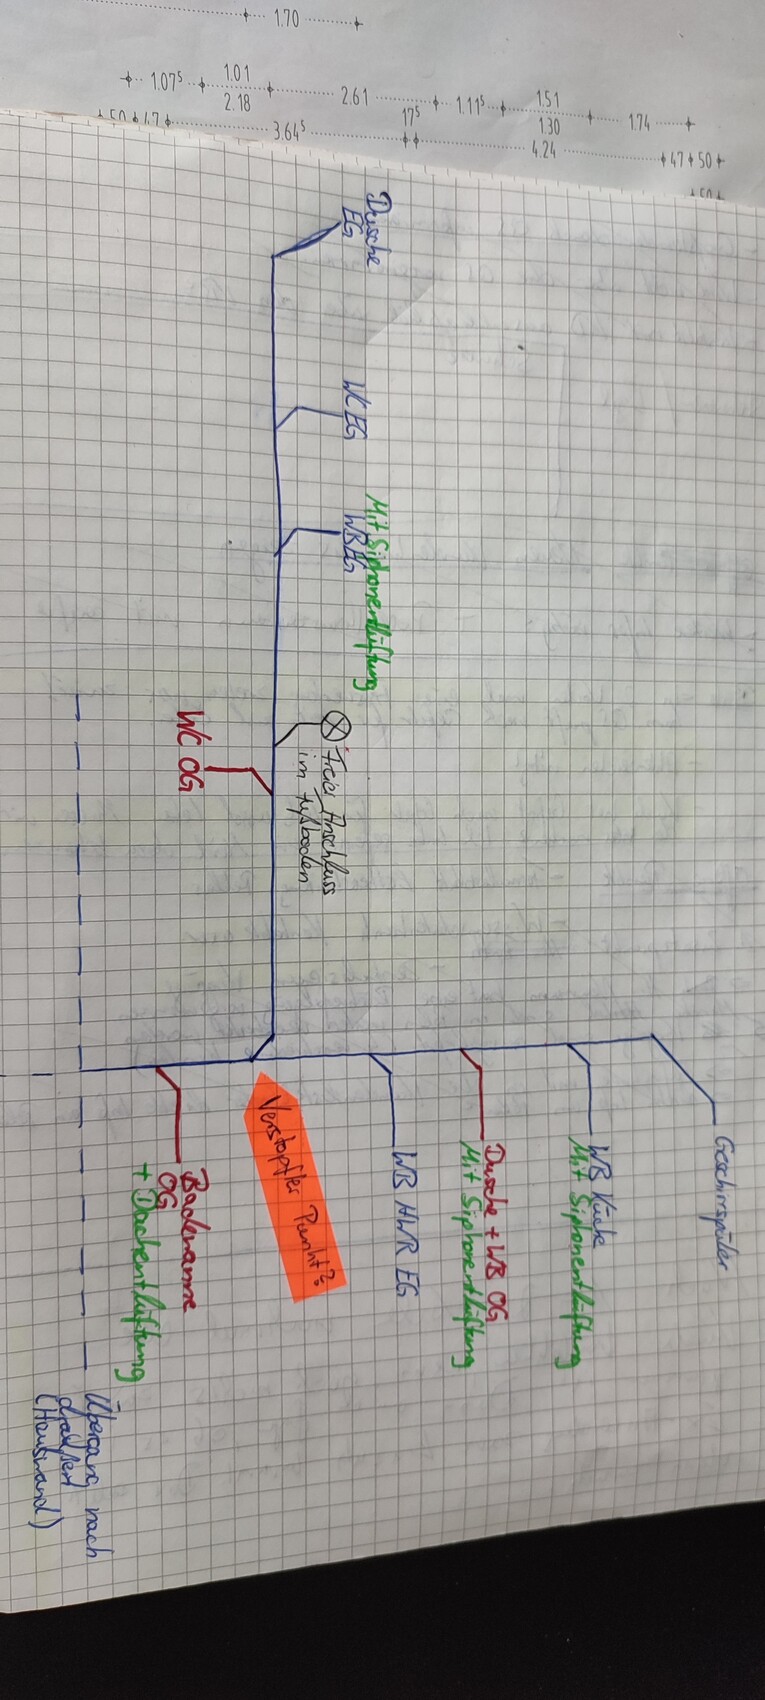 1.70
1.07⁵
1.01
2.18
2.61
17⁵
1.11⁵
1.51
1.30
1.74
50
47
3.64⁵
4.24
47
50
Dusche
EG
WC EG
Mit Siphonentlüftung
WB EG
Freier Anschluss
im Fußboden
WC OG
Verstopfter Punkt?
Geschirrspüler
WB Küche
Mit Siphonentlüftung
Dusche + WB OG
Mit Siphonentlüftung
WB HWR EG
Badewanne
OG
+ Dachentlüftung
Übergang nach
draußen
(Hauswand)